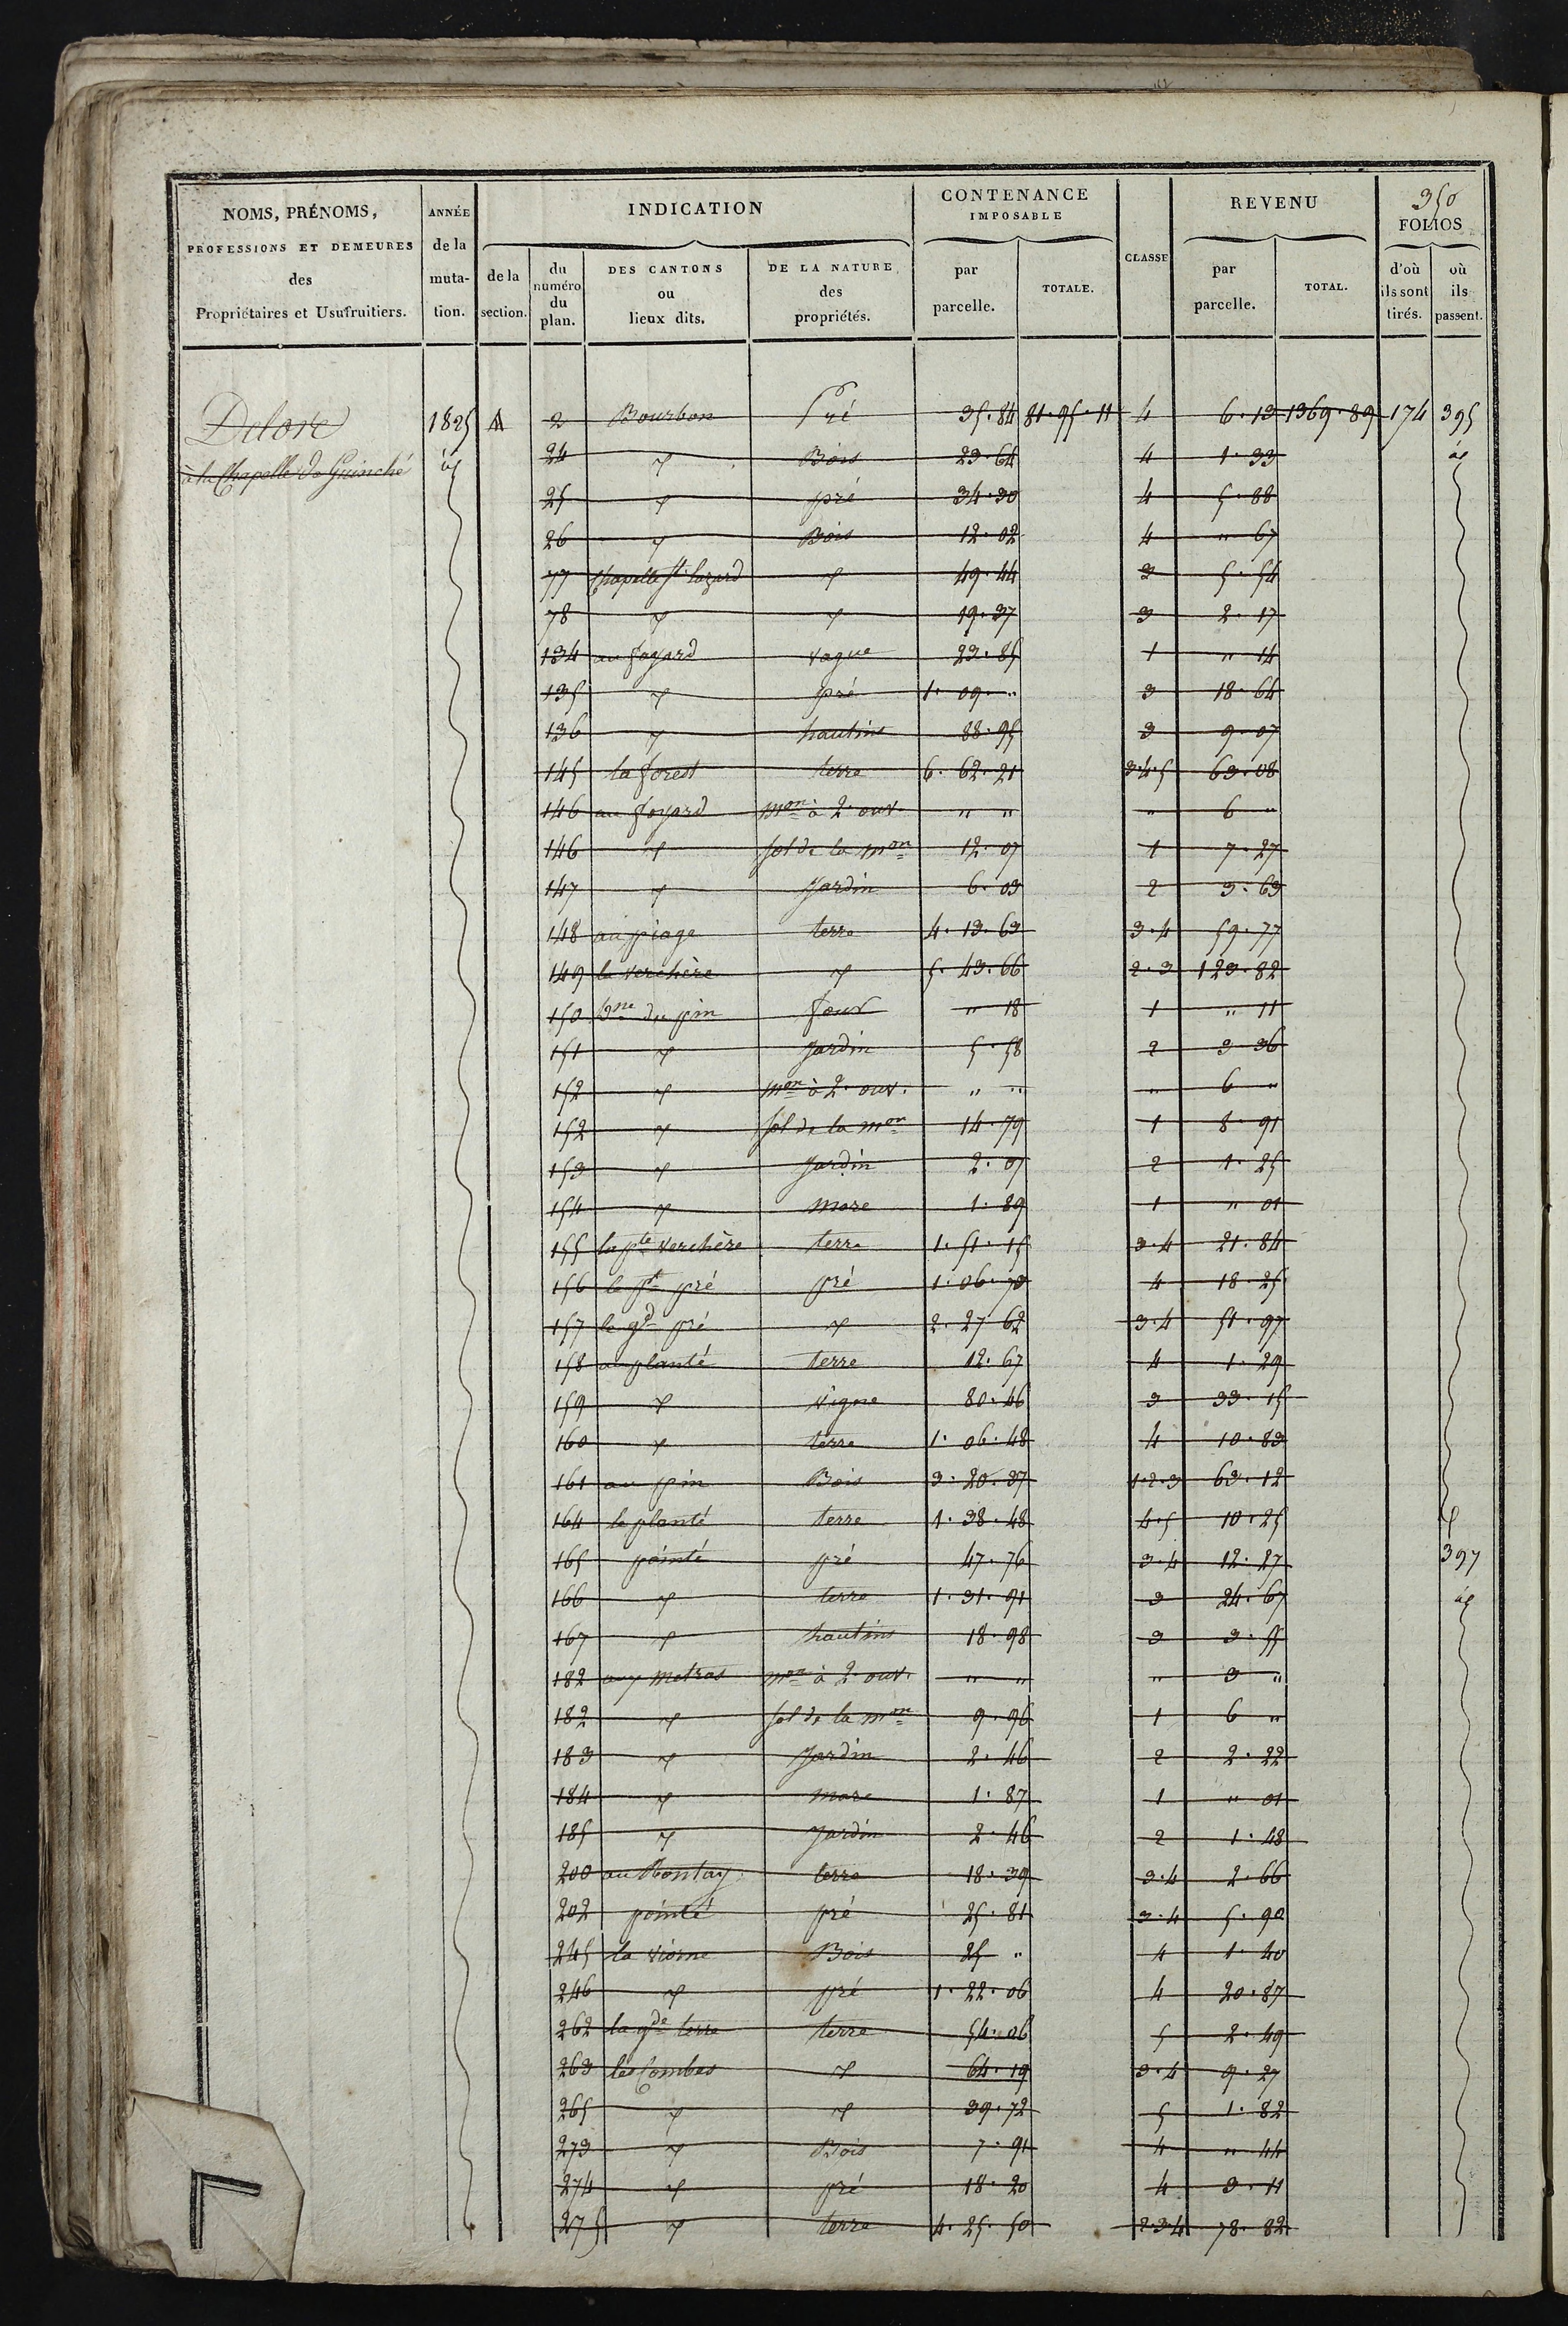 350
NOMS, PRÉNOMS, PROFESSIONS ET DEMEURES des Propriétaires et Usufruitiers.
ANNÉE de la muta- tion.
INDICATION
de la section.
du numéro du plan.
DES CANTONS ou lieux dits.
DE LA NATURE des propriétés.
CONTENANCE IMPOSABLE
par parcelle.
TOTALE.
CLASSE
REVENU
par parcelle.
TOTAL.
FOLIOS
d'où ils sont tirés.
où ils passent.
Delore 1825 A 2 Bourbon Pré 35.84 81.95.11 4 6.13 1369.89 174 395
à la Chapelle de Guinché id 24 id Bois 23.64 4 1.33 id
25 id pré 34.30 4 5.88
26 id Bois 12.02 4 " 67
77 Chapelle St lazard id 49.44 3 5.54
78 id id 19.37 3 2.17
134 au fayard vague 23.85 1 " 14
135 id pré 1.09. " 3 18.64
136 id hautins 88.95 3 9.07
145 la forest terre 6.62.21 3.4.5 63.08
146 au foyard mon à 2 ouv. " " " 6 "
146 id sol de la mon 12.07 1 7.27
147 id Jardin 6.03 2 3.63
148 au piage terre 4.13.63 3.4 59.77
149 la verchère id 5.43.66 2.3 123.82
150 dne du pin four " 18 1 " 11
151 id Jardin 5.58 2 3 36
152 id mon à 2 ouv. " " " 6 "
152 id sol de la mon 14.79 1 8.91
153 id Jardin 2.07 2 1.25
154 id mare 1.89 1 " 01
155 la pte verchère terre 1.51.15 3.4 21.84
156 le pt pré pré 1.06.73 4 18.25
157 le gd pré id 2.27 62 3.4 51.97
158 au planté terre 12.67 4 1.29
159 id vigne 80.46 3 33.15
160 id terre 1.06.48 4 10.83
161 au pin Bois 3.20.37 1.2.3 63.12
164 le planté terre 1.38.48 4.5 10.25 id
165 pointé pré 47.76 3.4 12.27 397
166 id terre 1.31.91 3 24.67 id
167 id hautins 18.98 3 3.55
182 aux metras mon à 2 ouv. " " " 3 "
182 id sol de la mon 9.96 1 6 "
183 id Jardin 2.46 2 2.22
184 id mare 1.87 1 " 01
185 id Jardin 2.46 2 1.48
200 au Montay terre 18.39 3.4 2.66
202 pointé pré 25.81 3.4 5.90
245 la viorne Bois 25 " 4 1.40
246 id pré 1.22.06 4 20.87
262 la gde terre terre 54.06 5 2.49
263 les Combes id 64.19 3.4 9.27
265 id id 39.72 5 1.82
273 id Bois 7.91 4 " 44
274 id pré 18.20 4 3.11
275 id terre 4.25.50 2.3.4 78.82